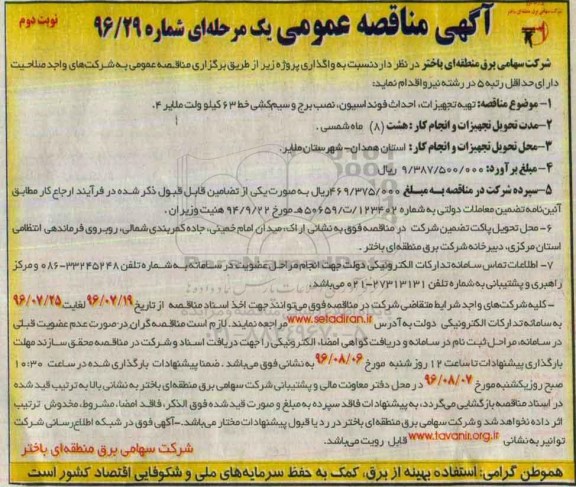 نوبت دوم
آگهی مناقصه عمومی یک مرحله‌ای شماره ۹۶/۲۹
شرکت سهامی برق منطقه‌ای باختر در نظر دارد نسبت به واگذاری پروژه زیر از طریق برگزاری مناقصه عمومی به شرکت‌های واجد صلاحیت
دارای حداقل رتبه ۵ در رشته نیرو اقدام نماید:
۱- موضوع مناقصه: تهیه تجهیزات، احداث فونداسیون، نصب برج و سیم‌کشی خط ۶۳ کیلو ولت ملایر ۴.
۲- مدت تحویل تجهیزات و انجام کار: هشت (۸) ماه شمسی.
۳- محل تحویل تجهیزات و انجام کار: استان همدان- شهرستان ملایر.
۴- مبلغ برآورد: ۹/۳۸۷/۵۰۰/۰۰۰ ریال
۵- سپرده شرکت در مناقصه به مبلغ ۴۶۹/۳۷۵/۰۰۰ ریال به صورت یکی از تضامین قابل قبول ذکر شده در فرآیند ارجاع کار مطابق
آئین‌نامه تضمین معاملات دولتی به شماره ۱۲۳۴۰۲/ت۵۰۶۵۹هـ مورخ ۹۴/۹/۲۲ هئیت وزیران.
۶- محل تحویل پاکت تضمین شرکت در مناقصه فوق به نشانی اراک، میدان امام خمینی، جاده کمربندی شمالی، روبروی فرماندهی انتظامی
استان مرکزی، دبیرخانه شرکت برق منطقه‌ای باختر.
۷- اطلاعات تماس سامانه تدارکات الکترونیکی دولت جهت انجام مراحل عضویت در سامانه به شماره تلفن ۳۳۲۴۵۲۴۸-۰۸۶ و مرکز
راهبری و پشتیبانی به شماره تلفن ۲۷۳۱۳۱۳۱-۰۲۱ می‌باشد.
- کلیه شرکت‌های واجد شرایط متقاضی شرکت در مناقصه فوق می‌توانند جهت اخذ اسناد مناقصه از تاریخ ۹۶/۰۷/۱۹ لغایت ۹۶/۰۷/۲۵
به سامانه تدارکات الکترونیکی دولت به آدرس www.setadiran.ir مراجعه نمایند. لازم است مناقصه گران در صورت عدم عضویت قبلی
در سامانه، مراحل ثبت نام در سامانه و دریافت گواهی امضاء الکترونیکی را جهت دریافت اسناد و شرکت در مناقصه محقق سازند مهلت
بارگذاری پیشنهادات تا ساعت ۱۲ روز شنبه مورخ ۹۶/۰۸/۰۶ به نشانی فوق می‌باشد. ضمنا پیشنهادات بارگذاری شده در ساعت ۱۰:۳۰
صبح روز یکشنبه مورخ ۹۶/۰۸/۰۷ در محل دفتر معاونت مالی و پشتیبانی شرکت سهامی برق منطقه‌ای باختر به نشانی بالا به ترتیب قید شده
در اسناد مناقصه بازگشایی می‌گردد، به پیشنهادات فاقد سپرده به مبلغ و صورت قید شده فوق الذکر، فاقد امضا، مشروط، مخدوش ترتیب
اثر داده نخواهد شد و شرکت سهامی برق منطقه‌ای باختر در رد یا قبول پیشنهادات مختار می‌باشد.- آگهی فوق در شبکه اطلاع‌رسانی شرکت
توانیر به نشانی www.tavanir.org.ir قابل رویت می‌باشد.
شرکت سهامی برق منطقه‌ای باختر
هموطن گرامی: استفاده بهینه از برق، کمک به حفظ سرمایه‌های ملی و شکوفایی اقتصاد کشور است